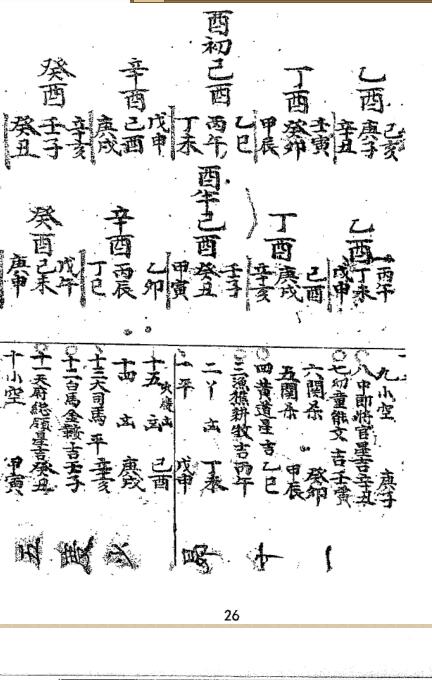 酉初
乙酉
己亥
庚子
辛丑
丁酉
壬寅
癸卯
甲辰
己酉
乙巳
丙午
丁未
辛酉
戊申
己酉
庚戌
癸酉
辛亥
壬子
癸丑
酉
乙酉
丙午
丁未
戊申
丁酉
己酉
庚戌
辛亥
己酉
壬子
癸丑
甲寅
辛酉
乙卯
丙辰
丁巳
癸酉
戊午
己未
庚申
九小空 庚子
八中郎將官星吉辛丑
七幼童能文吉壬寅
六関杀 癸卯
五関杀 甲辰
四黄道星吉乙巳
三漁樵耕牧吉丙午
二丫 丁未
一平 戊申
十五 己酉
十四 庚戌
十三大司馬平辛亥
十二白馬金鞍吉壬子
十一天府總領星吉癸丑
十小空 甲寅
26